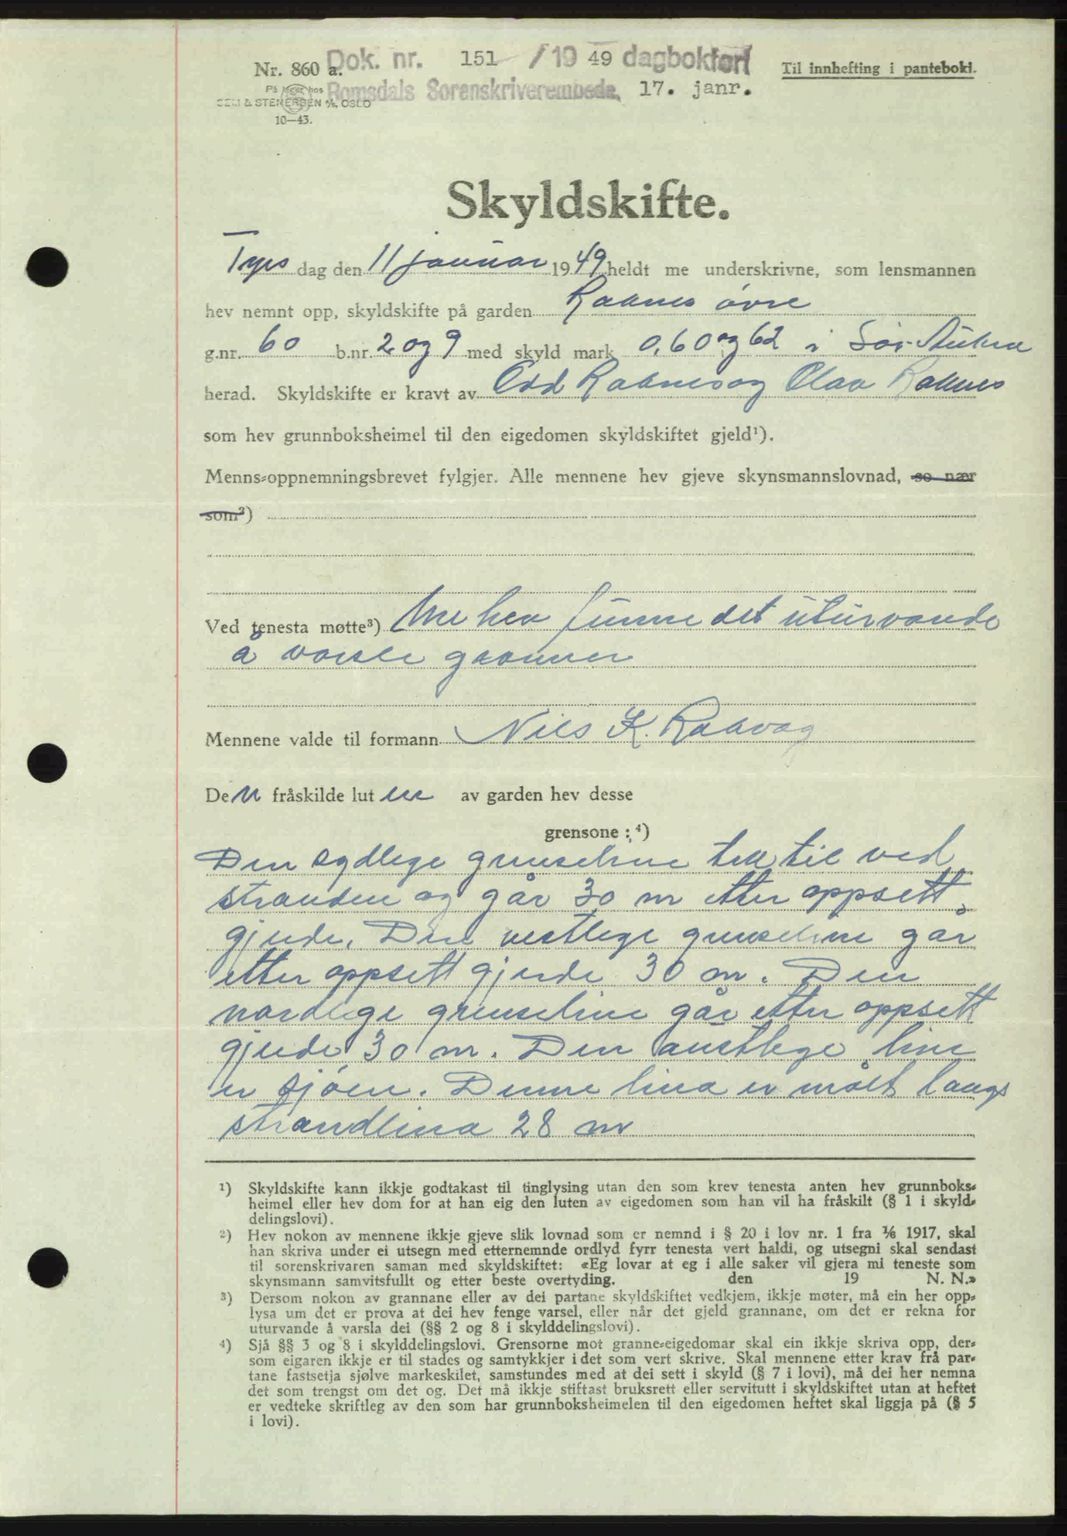 Nr. 860 a.
Dok. nr. 151 / 19 49 dagbokført
Til innhefting i pantebok.
På lager hos
SEM & STENERSEN A/S, OSLO
Romsdals Sorenskriverembede, 17. janr.
10—43.
Skyldskifte.
Tysdag den 11 januar 1949 heldt me underskrivne, som lensmannen
hev nemnt opp, skyldskifte på garden Raknes øvre
g.nr. 60 b.nr. 2 og 9 med skyld mark 0,60 og 62 i Sør-Aukra
herad. Skyldskifte er kravt av Odd Raknes og Olav Raknes
som hev grunnboksheimel til den eigedomen skyldskiftet gjeld¹).
Menns-oppnemningsbrevet fylgjer. Alle mennene hev gjeve skynsmannslovnad, so nær
som²)
Ved tenesta møtte³) Me hev funne det uturvande
å varsle grannar
Mennene valde til formann Nils K. Rakvåg
Den fråskilde luten av garden hev desse
grensone :⁴)
Den sydlege grenseline tek til ved
stranden og går 30 m etter oppsett
gjerde. Den vestlege grenseline går
etter oppsett gjerde 30 m. Den
nordlege grenseline går etter oppsett
gjerde 30 m. Den austlege line
er sjøen. Denne lina er målt langs
strandlina 28 m
¹) Skyldskifte kann ikkje godtakast til tinglysing utan den som krev tenesta anten hev grunnboks-
heimel eller hev dom for at han eig den luten av eigedomen som han vil ha fråskilt (§ 1 i skyld-
delingslovi).
²) Hev nokon av mennene ikkje gjeve slik lovnad som er nemnd i § 20 i lov nr. 1 fra ⅙ 1917, skal
han skriva under ei utsegn med etternemnde ordlyd fyrr tenesta vert haldi, og utsegni skal sendast
til sorenskrivaren saman med skyldskiftet: «Eg lovar at eg i alle saker vil gjera mi teneste som
skynsmann samvitsfullt og etter beste overtyding. den 19 N. N.»
³) Dersom nokon av grannane eller av dei partane skyldskiftet vedkjem, ikkje møter, må ein her opp-
lysa um det er prova at dei hev fenge varsel, eller når det gjeld grannane, om det er rekna for
uturvande å varsla dei (§§ 2 og 8 i skylddelingslovi).
⁴) Sjå §§ 3 og 8 i skylddelingslovi. Grensorne mot granne-eigedomar skal ein ikkje skriva opp, der-
som eigaren ikkje er til stades og samtykkjer i det som vert skrive. Skal mennene etter krav frå par-
tane fastsetja sjølve markeskilet, samstundes med at dei sett i skyld (§ 7 i lovi), må dei her nemna
det som trengst om det og. Det må ikkje stiftast bruksrett eller servitutt i skyldskiftet utan at heftet
er vedteke skriftleg av den som har grunnboksheimelen til den eigedomen heftet skal liggja på (§ 5
i lovi).